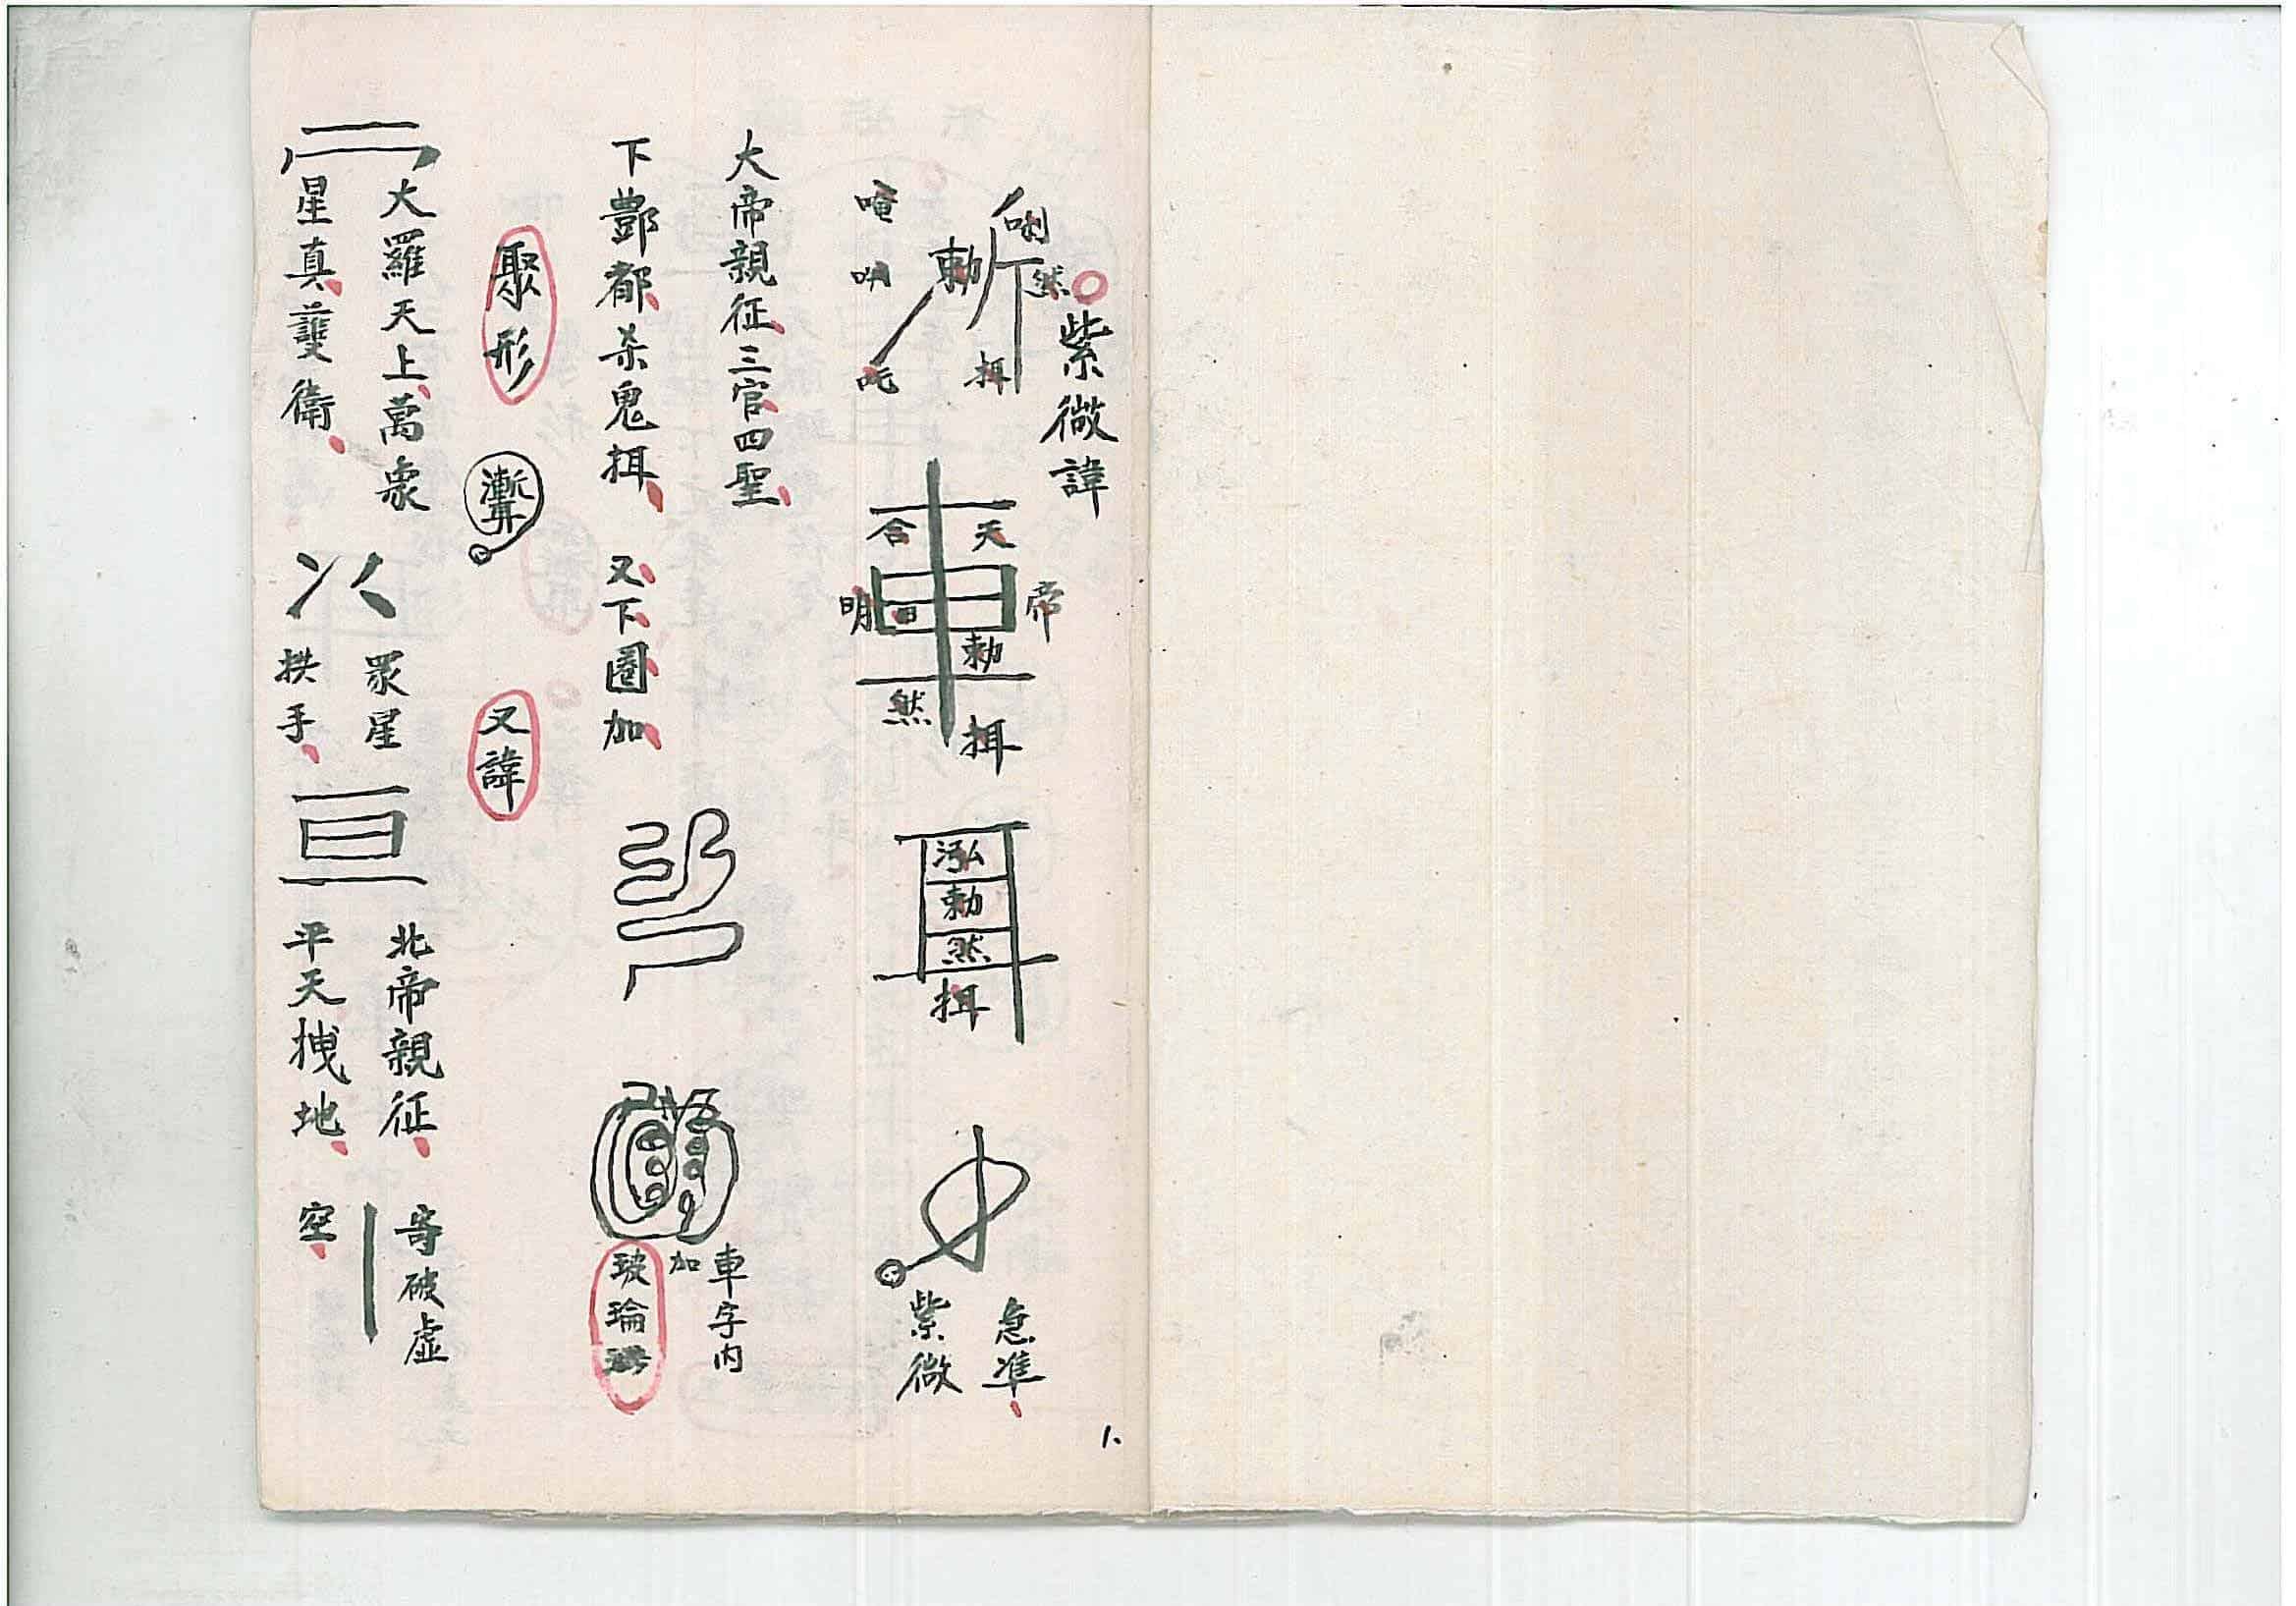 紫微諱
然
勅
唵
吽
吒
揖
天
合
帝
明
勅
然
揖
泓
勅
然
揖
急准
紫微
大帝親征三官四聖
下酆都杀鬼揖又下圈加
車字内
加
聚形
又諱
大羅天上萬衆
星真護衛
眾星
拱手
北帝親征
平天拽地
寄破虛
空
1、